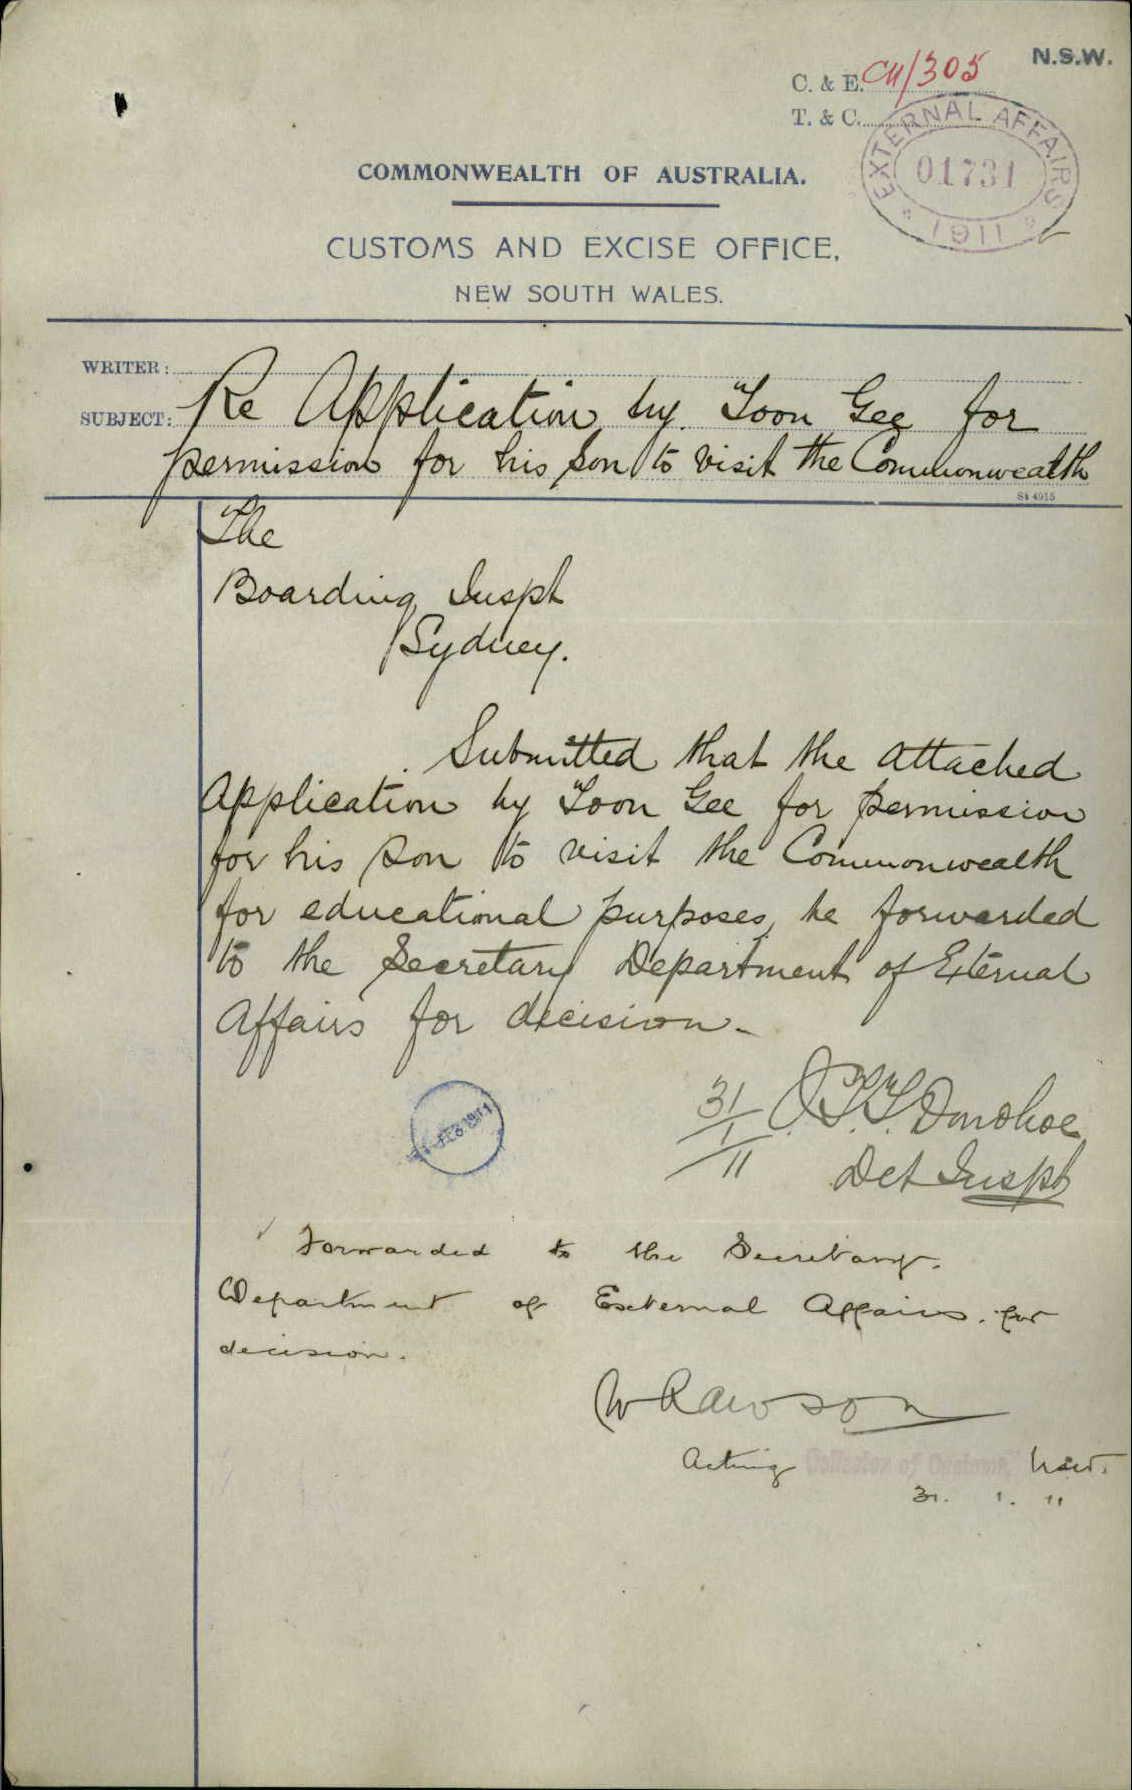 N.S.W.
C. & E. C11/305
T. & C.
EXTERNAL AFFAIRS
01731
1911
COMMONWEALTH OF AUSTRALIA.
CUSTOMS AND EXCISE OFFICE,
NEW SOUTH WALES.
WRITER:
SUBJECT: Re Application by Yoon Gee for
permission for his son to visit the Commonwealth
St 4915
The
Boarding Inspt
Sydney.
Submitted that the attached
Application by Yoon Gee for permission
for his son to visit the Commonwealth
for educational purposes, be forwarded
to the Secretary Department of External
Affairs for decision.-
FEB 1911
31/1/11 J.T.T. Donohoe
Det Inspt
Forwarded to the Secretary.
Department of External Affairs. for
decision.
W Rawson
Acting Collector of Customs, N.S.W.
31. 1. 11